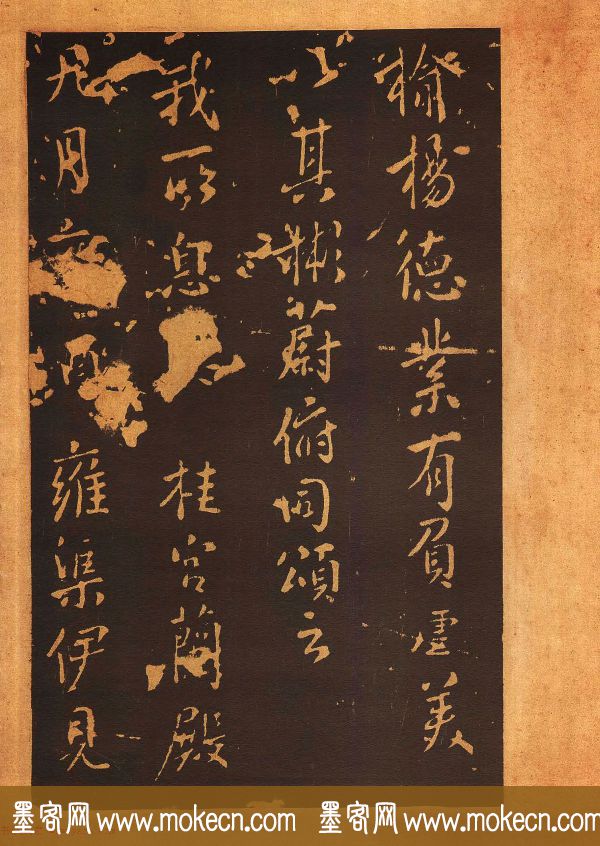 揄楊德業有負虛美
以其彬蔚俯同頌云
我所息 桂宮蘭殿
九月 酉雍渠伊見
墨客网 www.mokecn.com 墨客网 www.mokecn.com